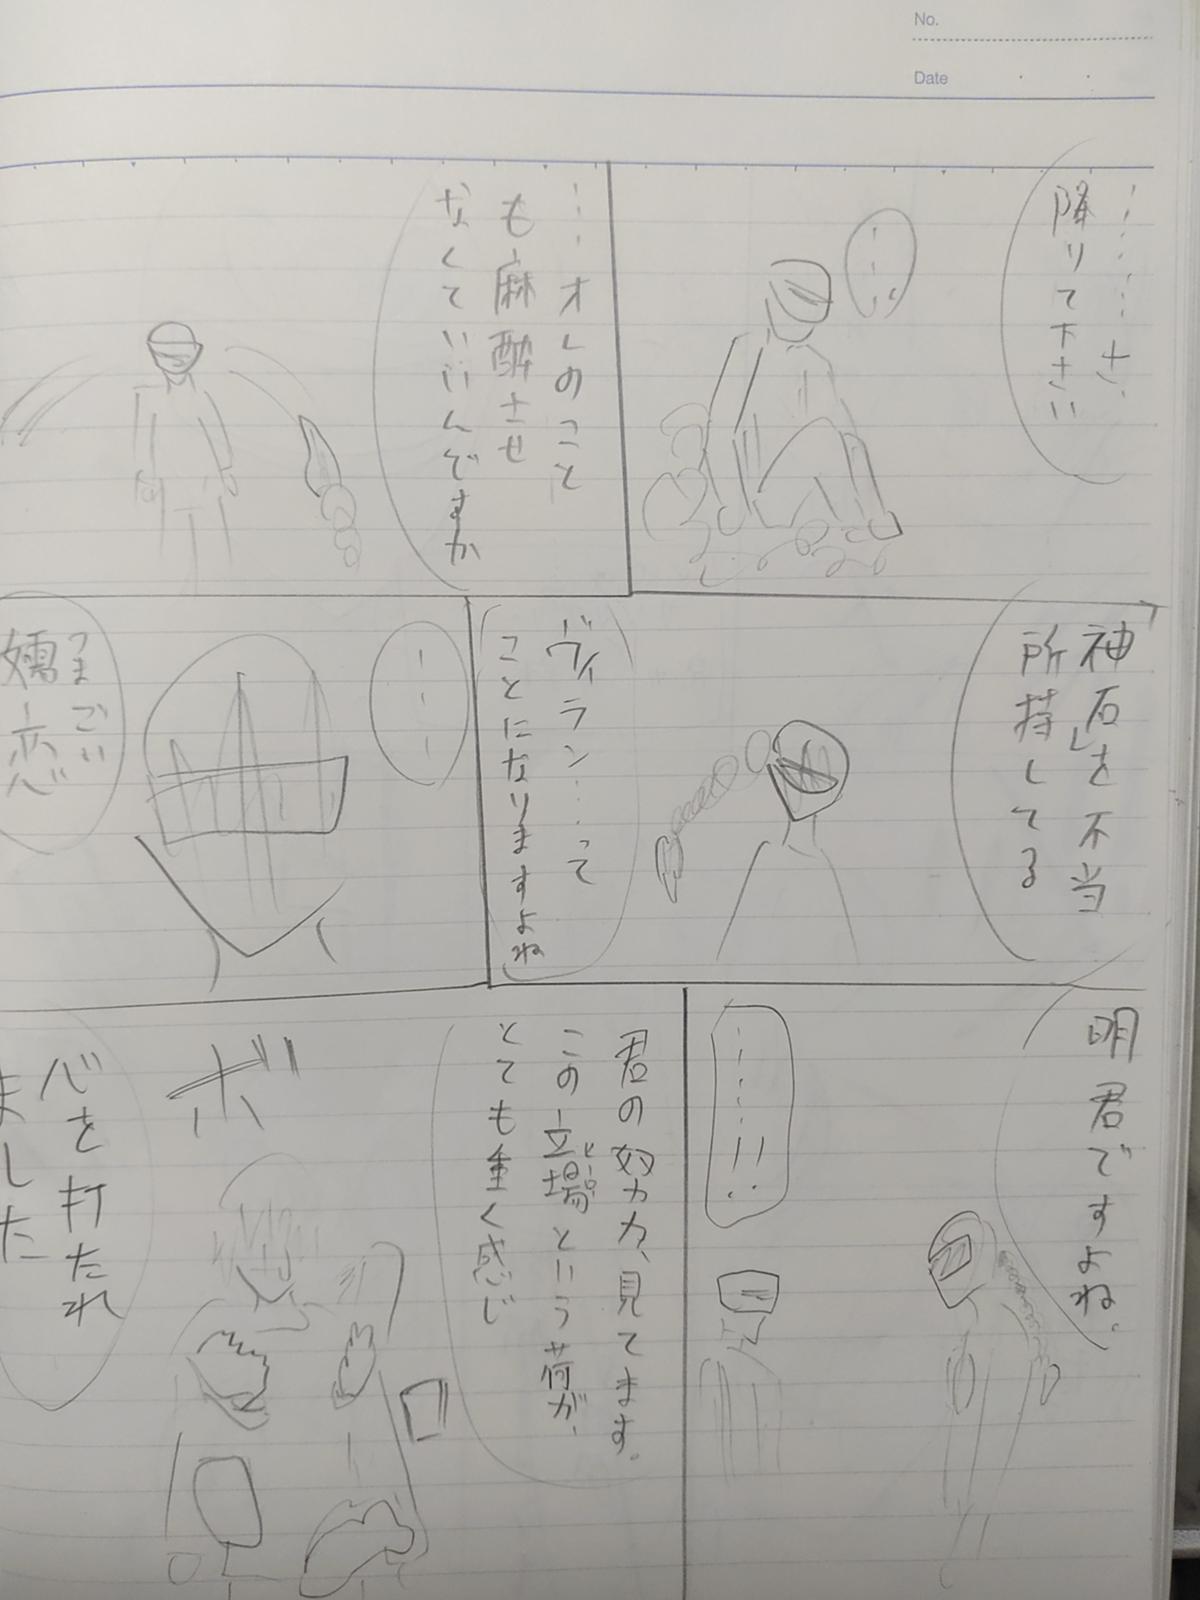 No.
Date
………さ、
降りて下さい
……
…オレのこと
も麻酔させ
なくていいんですか
「神石」を不当
所持してる
ヴィラン…って
ことになりますよね
………
つまごい
嬬恋
明君ですよね。
………!!
君の努力、見てます。
この立場という荷が、
とても重く感じ
ボ
心を打たれ
ました